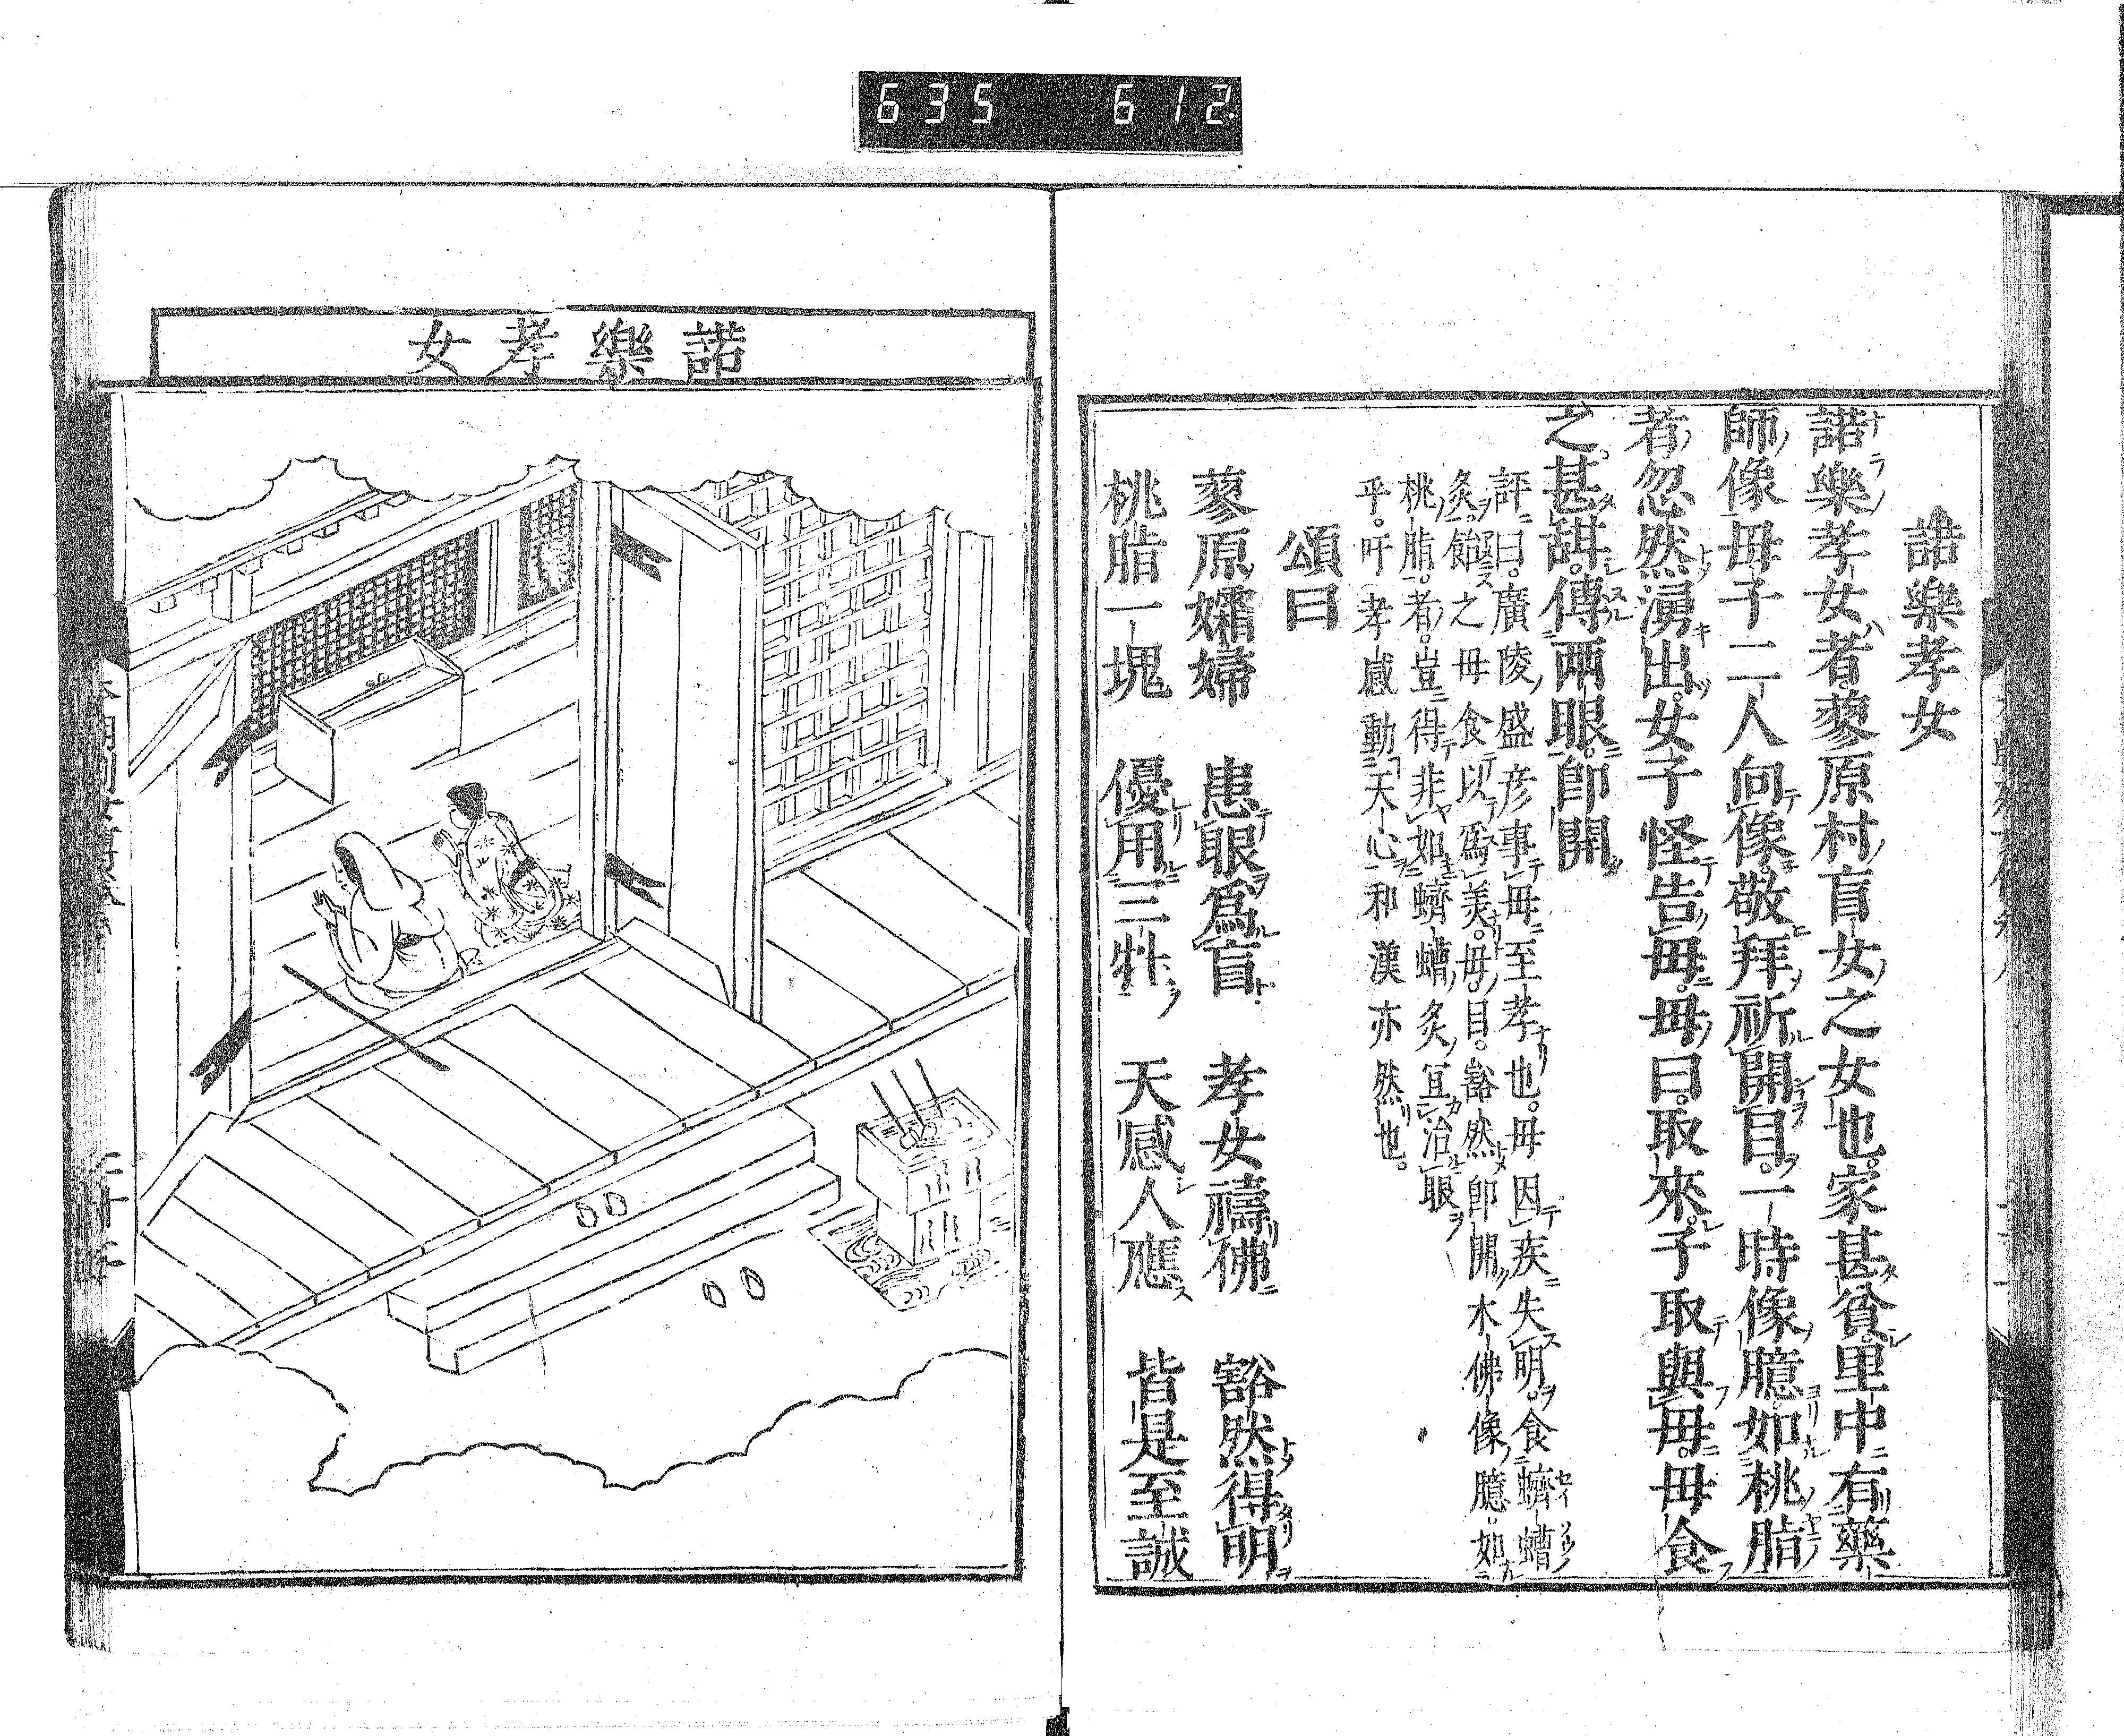 635 612
諾樂孝女
諾樂孝女者。蓼原村盲女之女也。家甚貧。里中有藥
師像。母子二人向像。敬拜祈開目。一時像臆如桃脂
者忽然湧出。女子怪告母。母曰取來。子取與母。母食
之。甚甜。傳兩眼。卽開
評曰。廣陵盛彦事母至孝也。母因疾失明。食蠐螬
炙。飴之母食以爲美。母目。豁然卽開。木佛像臆。如
桃脂。者。豈得非如蠐螬炙冝治眼
乎。吁孝感動天心和漢亦然也。
頌曰
蓼原孀婦 患眼爲盲 孝女禱佛 豁然得明
桃脂一塊 優用三牲 天感人應 皆是至誠
諾樂孝女